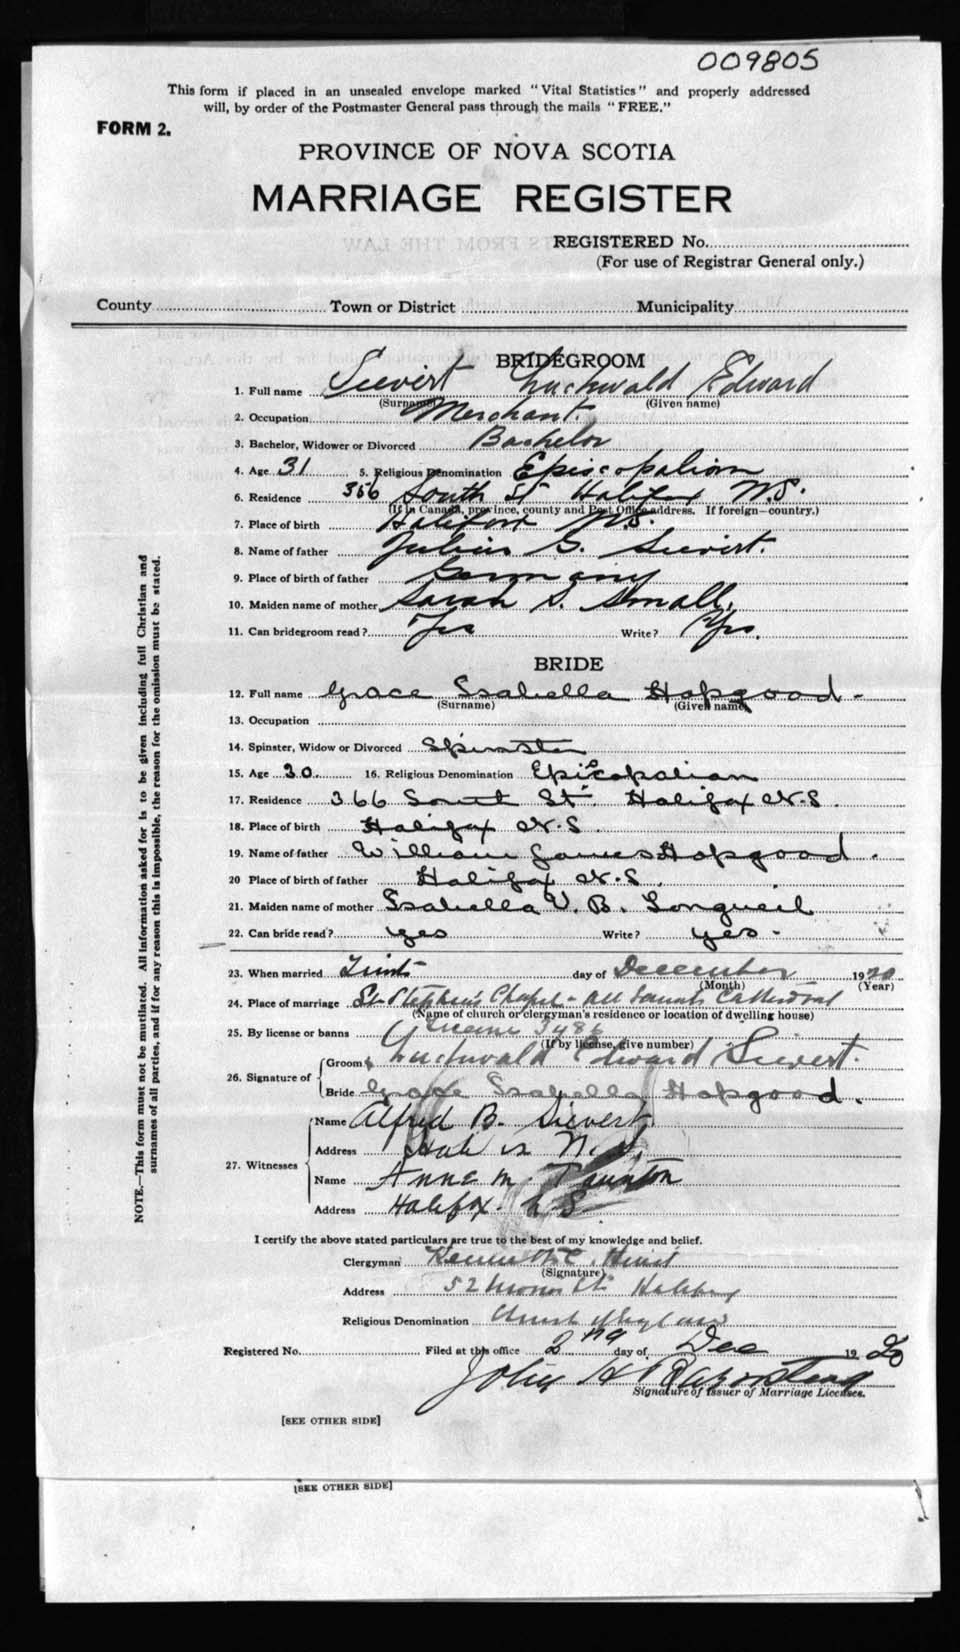 009805
This form if placed in an unsealed envelope marked "Vital Statistics" and properly addressed
will, by order of the Postmaster General pass through the mails "FREE."
FORM 2.
PROVINCE OF NOVA SCOTIA
MARRIAGE REGISTER
REGISTERED No.
(For use of Registrar General only.)
County Town or District Municipality
BRIDEGROOM
1. Full name Sievert Edward
(Surname) (Given name)
2. Occupation Merchant.
3. Bachelor, Widower or Divorced Bachelor
4. Age 31 5. Religious Denomination Episcopalian
6. Residence 356 South St Halifax N.S.
(If in Canada, province, county and Post Office address. If foreign—country.)
7. Place of birth Halifax N.S.
8. Name of father Julius G. Sievert.
9. Place of birth of father Germany
10. Maiden name of mother Sarah S. Small.
11. Can bridegroom read? Yes Write? Yes.
BRIDE
12. Full name Grace Isabella Hopgood.
(Surname) (Given name)
13. Occupation
14. Spinster, Widow or Divorced Spinster
15. Age 30. 16. Religious Denomination Episcopalian
17. Residence 366 South St. Halifax N.S.
18. Place of birth Halifax N.S.
19. Name of father William James Hopgood.
20 Place of birth of father Halifax N.S.
21. Maiden name of mother Isabella V. B. Longueil
22. Can bride read? yes Write? yes.
23. When married First day of December 1920
(Month) (Year)
24. Place of marriage St Stephen's Chapel - All Saints Cathedral
(Name of church or clergyman's residence or location of dwelling house)
25. By license or banns License 3486
(If by license, give number)
26. Signature of Groom Edward Sievert.
Bride Grace Isabella Hopgood.
27. Witnesses Name Alfred B. Sievert
Address N.S.
Name Anne M. Taunton
Address Halifax N S
I certify the above stated particulars are true to the best of my knowledge and belief.
Clergyman Kenneth C. Hind
(Signature)
Address 52 St Halifax
Religious Denomination Church of England
Registered No. Filed at this office 2nd day of Dec 1920
John H
Signature of Issuer of Marriage Licenses.
[SEE OTHER SIDE]
[SEE OTHER SIDE]
NOTE.—This form must not be mutilated. All information asked for is to be given including full Christian and
surnames of all parties, and if for any reason this is impossible, the reason for the omission must be stated.